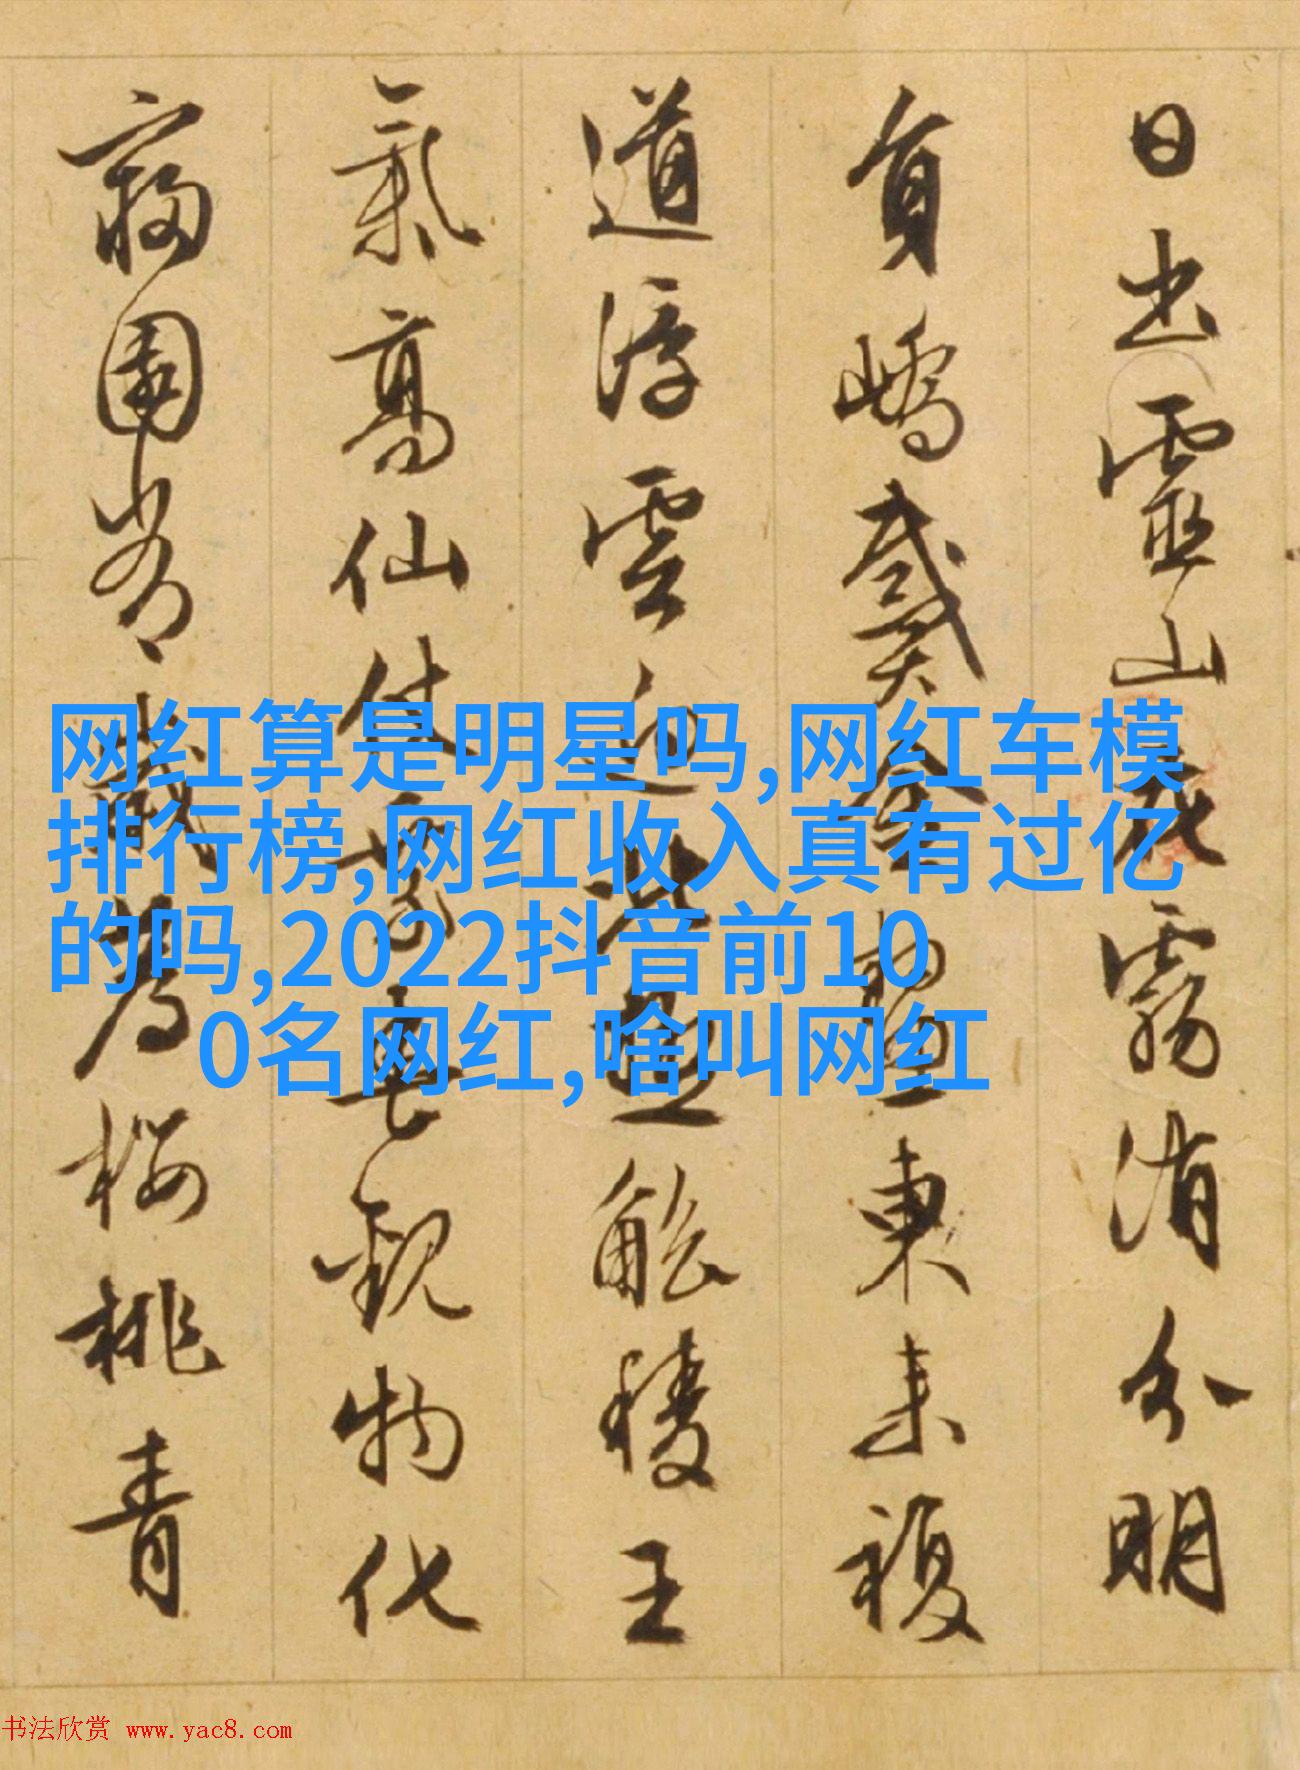 日出靈山霧消分明
員嶠戴金東來復
道浮雲觴穆王
氣高仙觀物化
為桃青
网红算是明星吗,网红车模
排行榜,网红收入真有过亿
的吗,2022抖音前10
0名网红,啥叫网红
书法欣赏 www.yac8.com